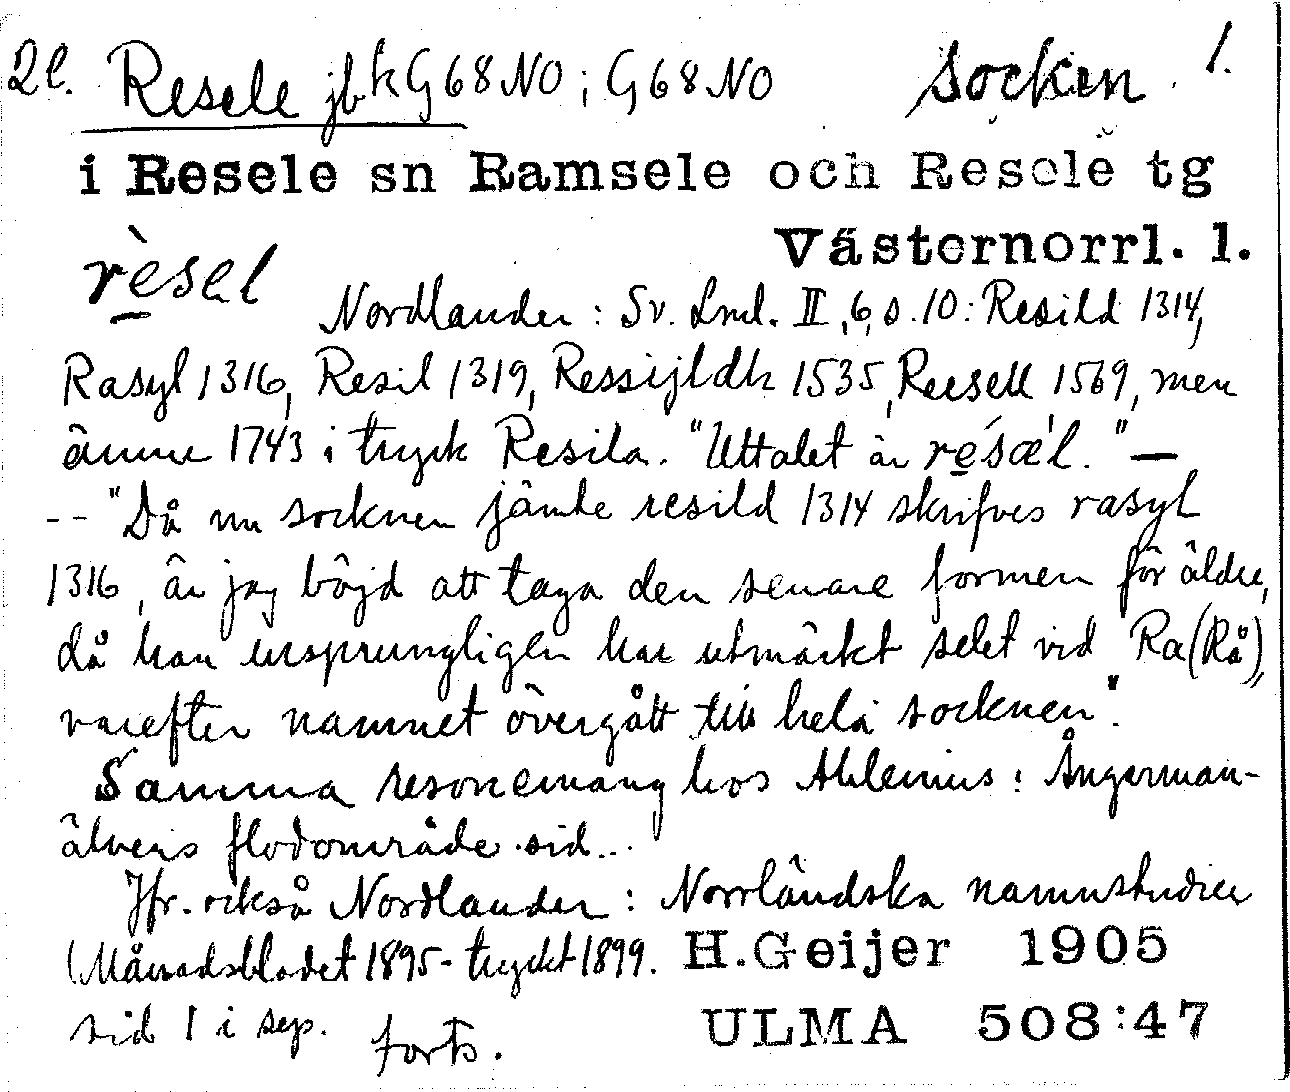 2l. Resele jbk G68NO; G68NO socken 1.
i Resele sn Ramsele och Resele tg
Västernorrl. l.
rèsel
Nordlander: Sv. Lml. II, 6, s. 10: Resild 1314,
Rasyl 1316, Resil 1319, Ressijldh 1535, Reesell 1569, men
ännu 1743 i tryck Resila. "Uttalet är résæ'l." —
-- "Då nu socknen jämte resild 1314 skrifves rasyl
1316, är jag böjd att taga den senare formen för äldre,
då han ursprungligen har utmärkt selet vid Ra (Rå),
varefter namnet övergått till hela socknen".
Samma resonemang hos Ahlenius: Ångerman-
älvens flodområde sid...
Jfr. också Nordlander: Norrländska namnstudier
(Månadsbladet 1895 - tryckt 1899. H.Geijer 1905
sid 1 i sep. forts. ULMA 508:47